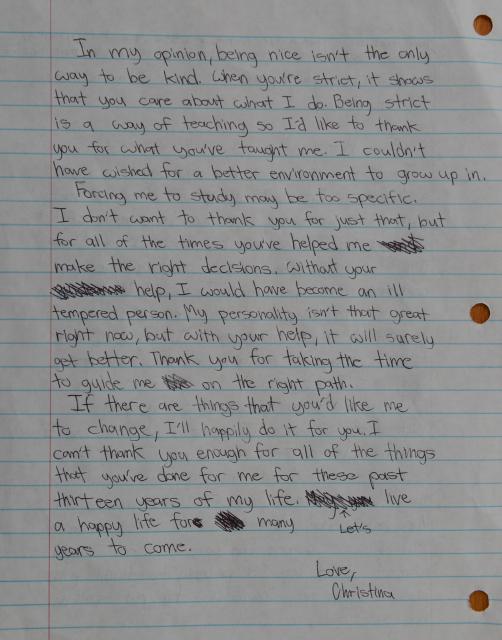 In my opinion, being nice isn't the only
way to be kind. When you're strict, it shows
that you care about what I do. Being strict
is a way of teaching so I'd like to thank
you for what you've taught me. I couldn't
have wished for a better environment to grow up in.
Forcing me to study may be too specific.
I don't want to thank you for just that, but
for all of the times you've helped me
make the right decisions. Without your
help, I would have become an ill
tempered person. My personality isn't that great
right now, but with your help, it will surely
get better. Thank you for taking the time
to guide me on the right path.
If there are things that you'd like me
to change, I'll happily do it for you. I
can't thank you enough for all of the things
that you've done for me for these past
thirteen years of my life. Let's live
a happy life for many
years to come.
Love,
Christina